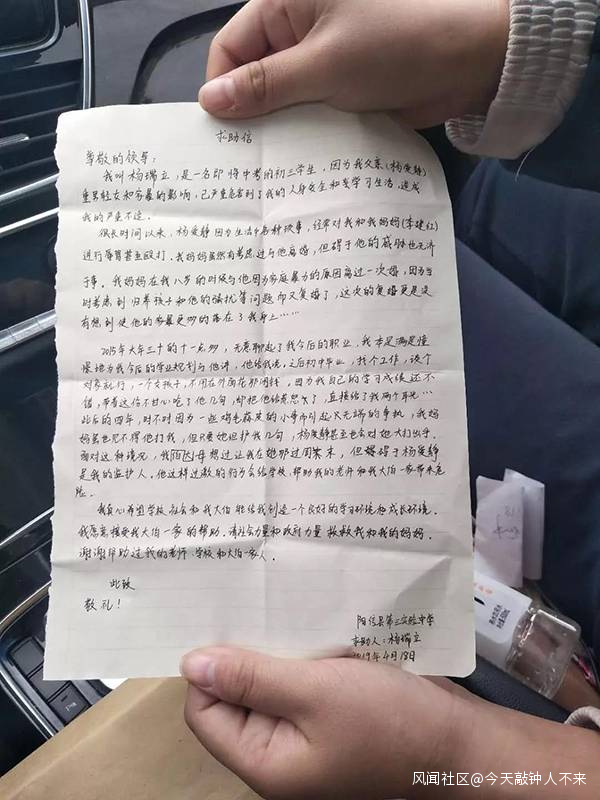 求助信
尊敬的领导：
我叫杨瑞立，是一名即将中考的初三学生，因为我父亲(杨爱静)
重男轻女和家暴的影响，已严重危害到了我的人身安全和受学习生活，造成
我的严重不适。
很长时间以来，杨爱静因为生活中各种轶事，经常对我和我妈妈(李建红)
进行辱骂甚至殴打。我妈妈虽然有考虑过与他离婚，但碍于他的威胁也无济
于事。我妈妈在我八岁的时候与他因为家庭暴力的原因离过一次婚，因为当
时考虑到归养孩子和他的骚扰等问题而又复婚了，这次的复婚更是没
有想到使他的家暴更多的落在了我身上……
2015年大年三十的十一点多，无意聊起了我今后的职业，我本是满是憧
憬地为我今后的学业规划与他讲，他给我说，之后初中毕业，找个工作，谈个
对象就行，一个女孩子，不用在外面花那闲钱，因为我自己的学习成绩还不
错，带着这份不甘心吃了他几句，却把他给惹怒了，直接给了我两个耳光…
此后的四年，时不时因为一些鸡毛蒜皮的小事而引起火无端的事执，我妈
妈虽也见不得他打我，但只要她但护我几句，杨爱静甚至也会对她大打出手。
面对这种情况，我伯母想过让我在她那过周末，但碍于杨爱静
是我的监护人。他这样过激的行为会给学校、帮助我的老师和我大伯一家带来危
险。
我真心希望学校、社会和我大伯能给我创造一个良好的学习环境和成长环境。
我愿意接受我大伯一家的帮助。请社会力量和政府力量拯救我和我的妈妈。
谢谢帮助过我的老师、学校和大伯一家人。
此致
敬礼！
阳信县第三实验中学
求助人：杨瑞立
2019年4月18日
风闻社区@今天敲钟人不来